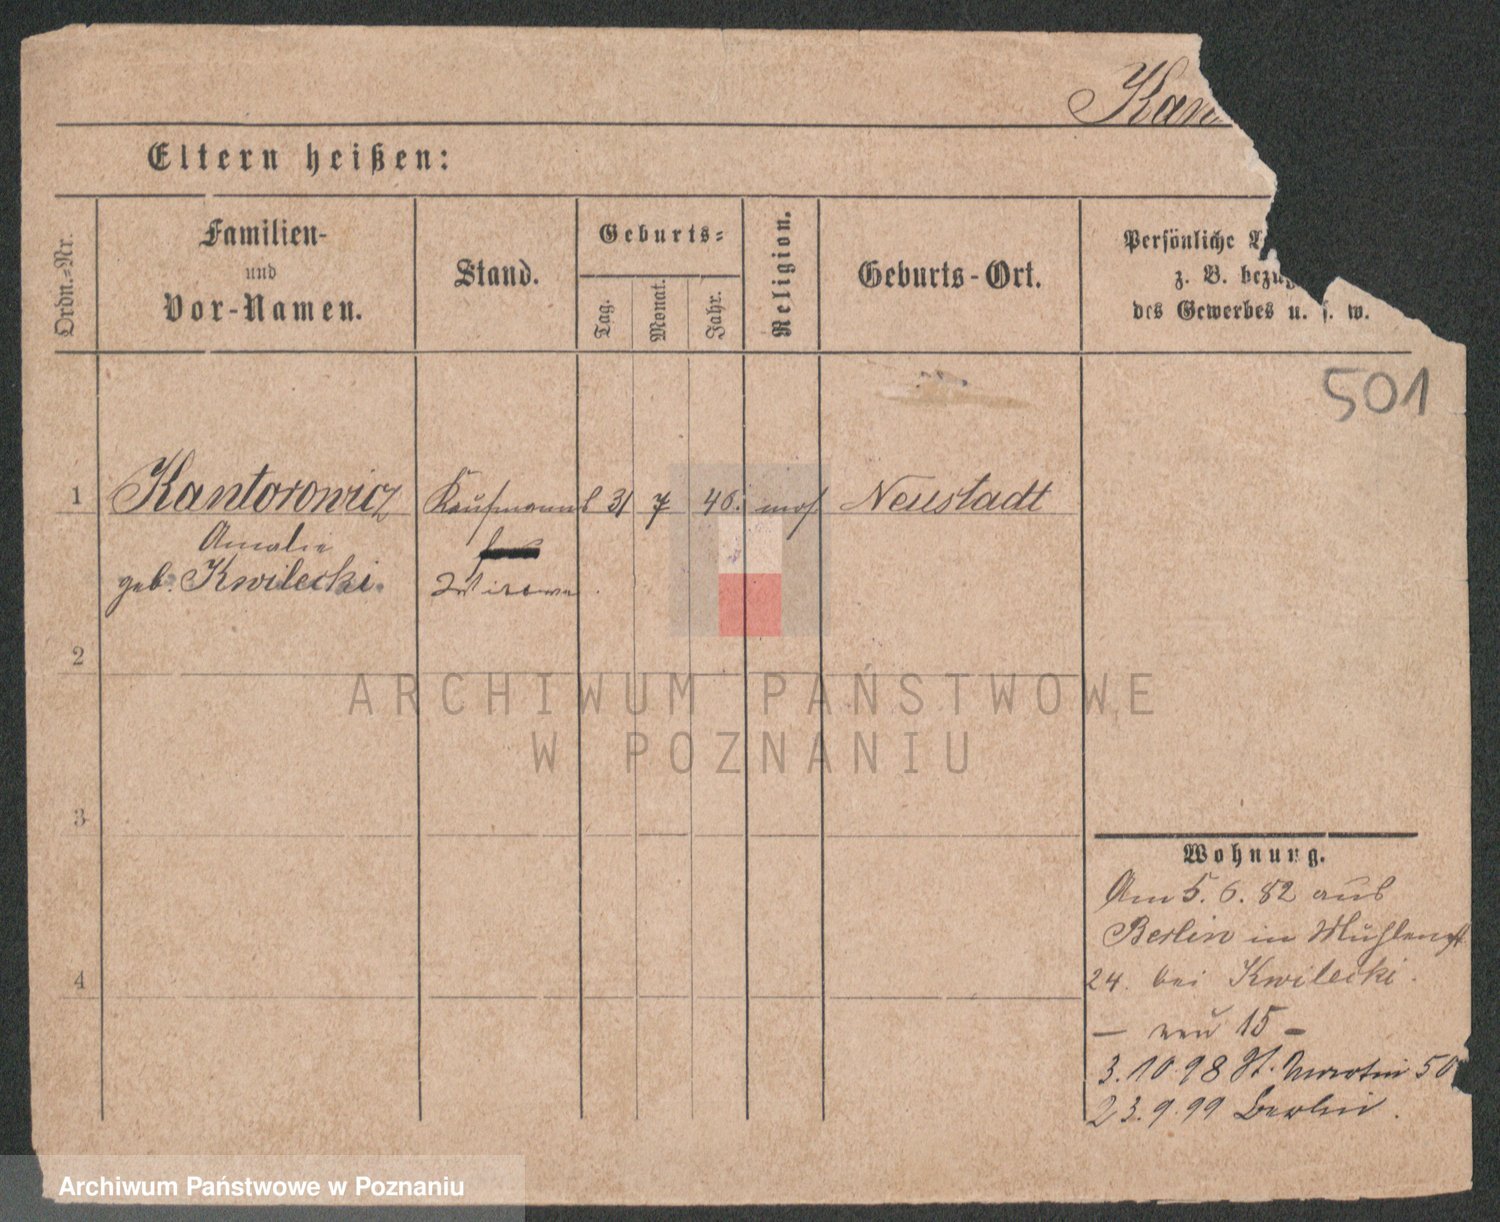 Kan
Eltern heißen:
Ordn.-Nr.
Familien-
und
Vor-Namen.
Stand.
Geburts-
Tag.
Monat.
Jahr.
Religion.
Geburts-Ort.
Persönliche
z. B. bezüg
des Gewerbes u. s. w.
501
1 Kantorowicz Kaufmanns 31 7 46. mos. Neustadt
Amalie
geb. Kwilecki. Wittwe
2
3
4
Wohnung.
Am 5. 6. 82 aus
Berlin in Mühlenst
24. bei Kwilecki.
— neu 15 —
3.10.98 St. Martin 50
23.9.99 Berlin.
ARCHIWUM PAŃSTWOWE
W POZNANIU
Archiwum Państwowe w Poznaniu